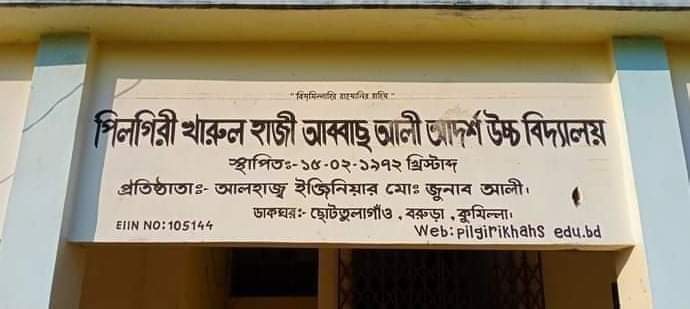 " বিসমিল্লাহির রাহমানির রাহিম "
পিলগিরী খারুল হাজী আব্বাছ আলী আদর্শ উচ্চ বিদ্যালয়
স্থাপিতঃ-১৫-০২-১৯৭২ খ্রিস্টাব্দ
প্রতিষ্ঠাতাঃ- আলহাজ্ব ইঞ্জিনিয়ার মোঃ জুনাব আলী।
ডাকঘরঃ- ছোটতুলাগাঁও, বরুড়া, কুমিল্লা।
EIIN NO:105144
Web:pilgirikhahs edu.bd